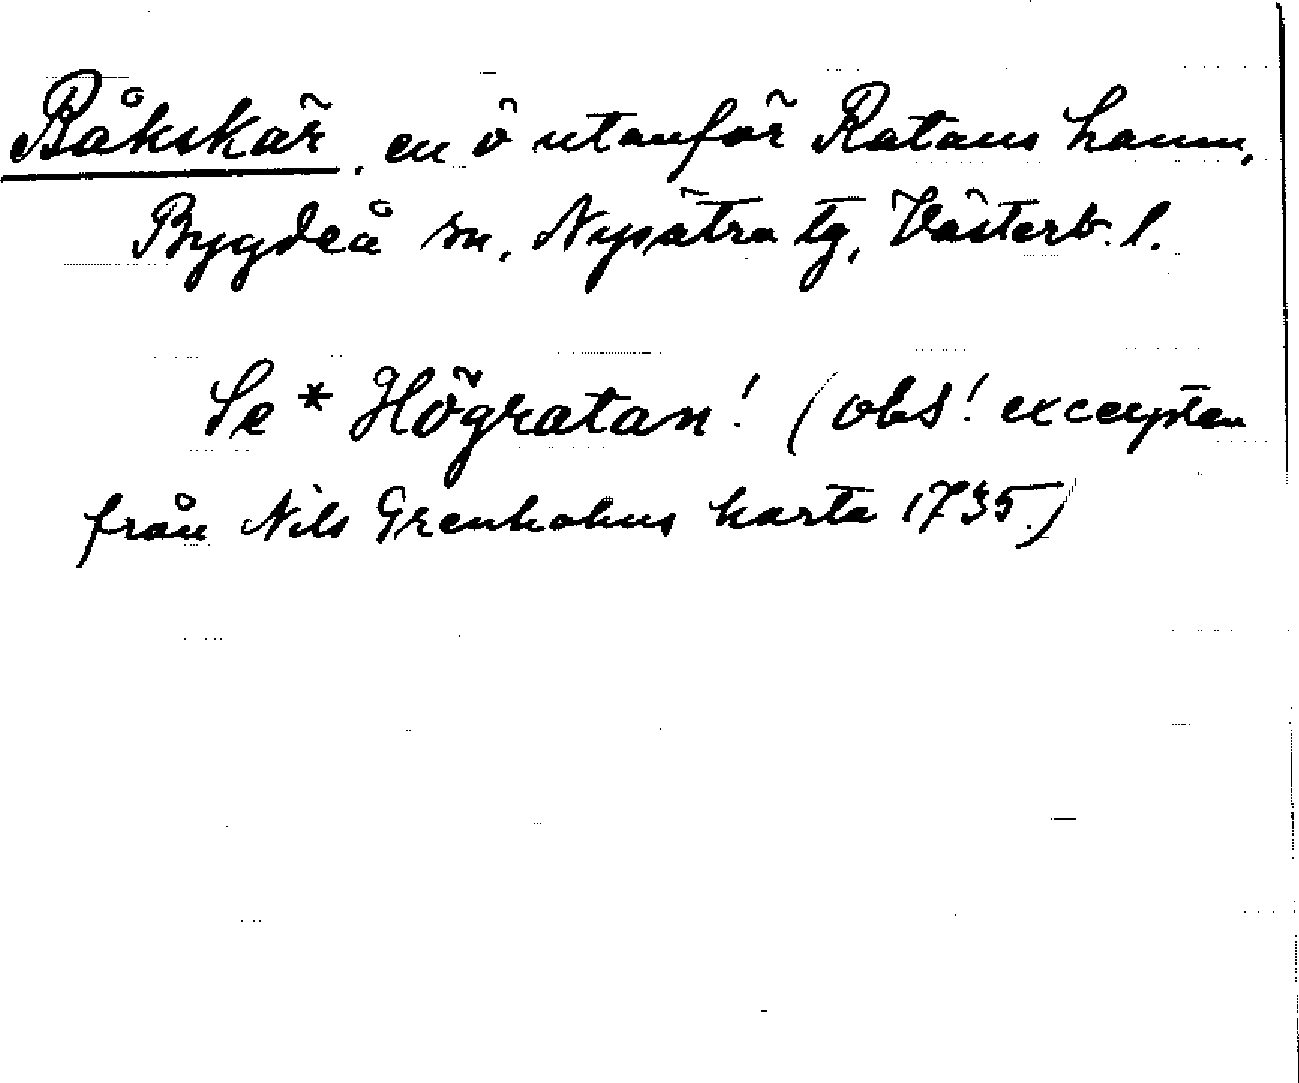 Båkskär, en ö utanför Ratans hamn,
Bygdeå sn, Nysätra tg, Västerb. l.
Se * Högratan! (obs! excerpten
från Nils Grenholms karta 1735.)